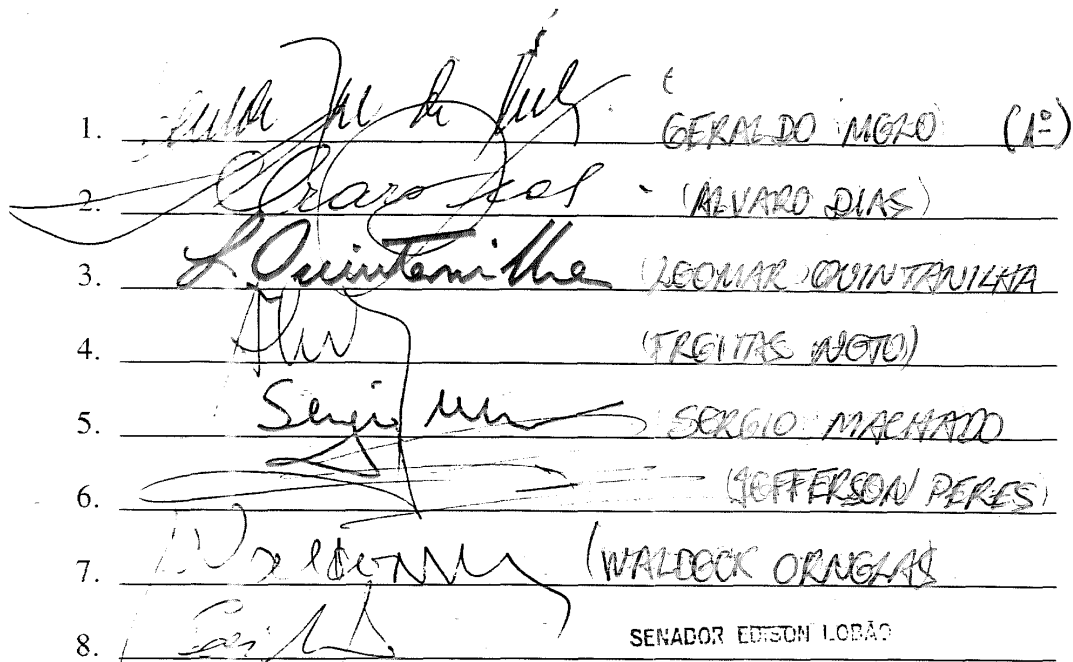 1. GERALDO MELO (1º)
2. Alvaro Dias (ALVARO DIAS)
3. L. Quintanilha (LEOMAR QUINTANILHA
4. (FREITAS NETO)
5. Sergio SERGIO MACHADO
6. (JEFFERSON PERES)
7. (WALDECK ORNELAS
8. SENADOR EDISON LOBÃO